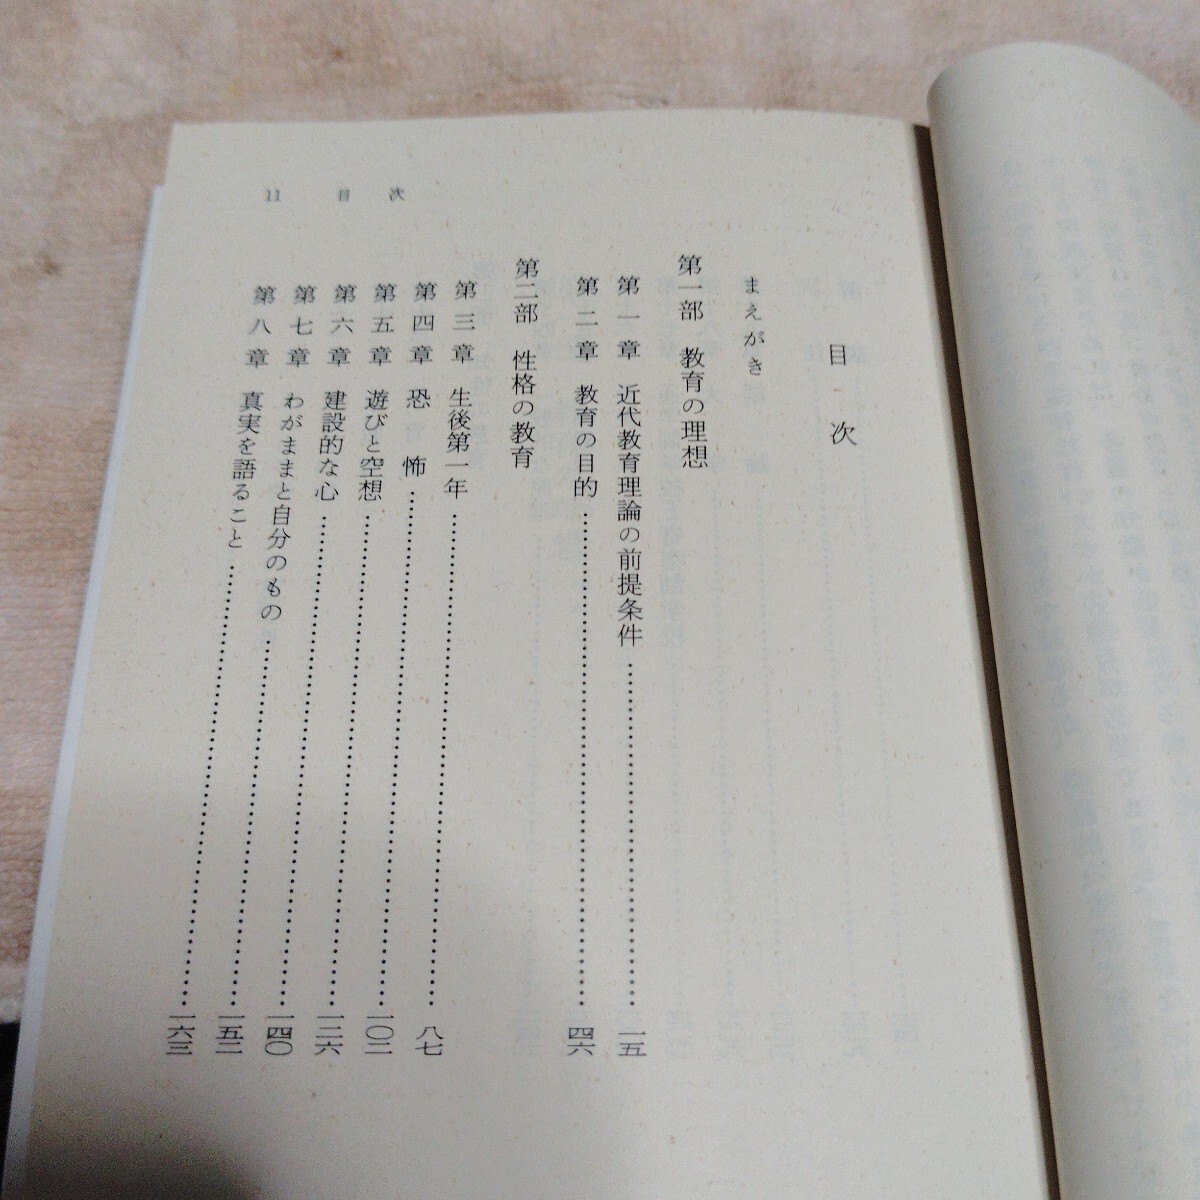 11 目次
目次
まえがき
第一部 教育の理想
第一章 近代教育理論の前提条件……一五
第二章 教育の目的……四六
第二部 性格の教育
第三章 生後第一年……八七
第四章 恐怖……一〇二
第五章 遊びと空想……一二六
第六章 建設的な心……一四〇
第七章 わがままと自分のもの……一五二
第八章 真実を語ること……一六三